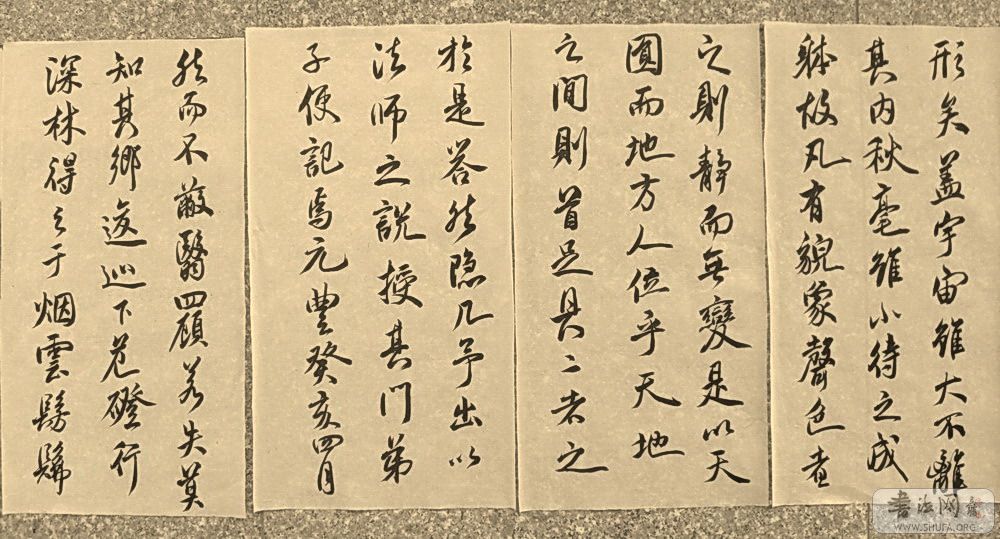 形矣盖宇宙雖大不離
其内秋毫雖小待之成
躰故凡有貌象聲色者
之則靜而無變是以天
圓而地方人位乎天地
之間則首足具二者之
於是荅然隐几予出以
法師之說授其門弟
子使記焉元豐癸亥四月
然而不蔽醫四顧若失莫
知其鄉逡巡下危磴行
深林得之于烟雲髣髴
书法网
WWW.SHUFA.ORG